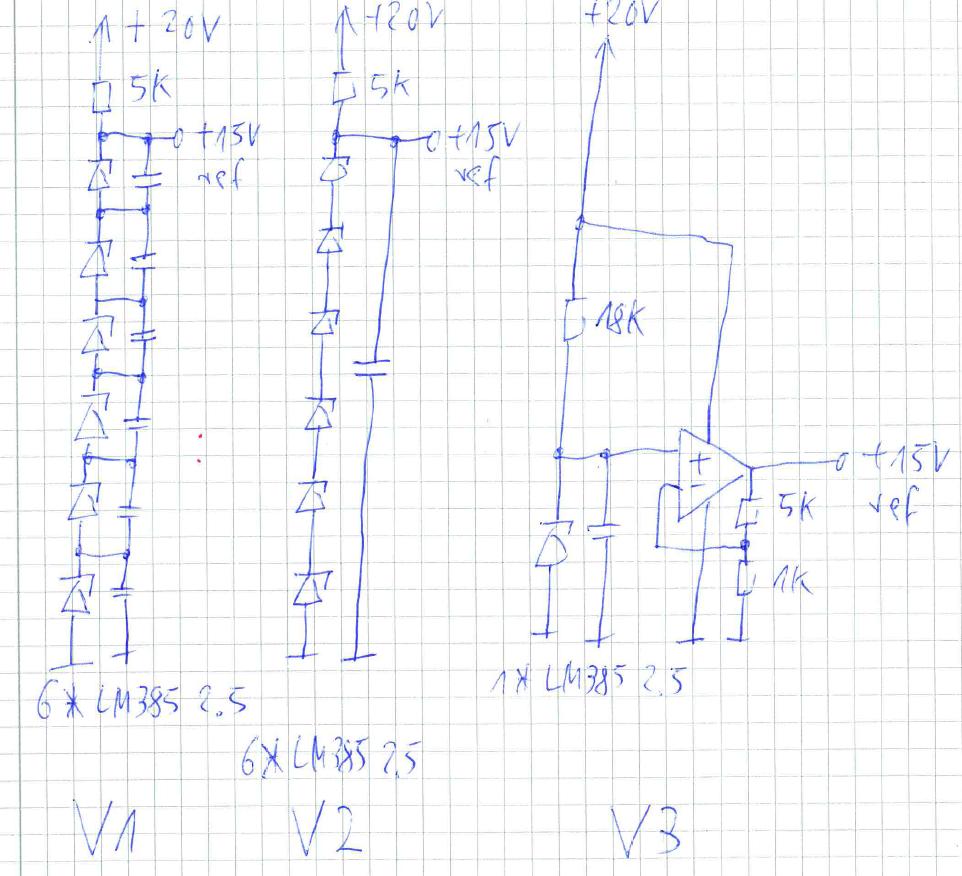 +20V
5k
+15V
ref
6* LM385 2.5
V1
+20V
5k
+15V
ref
6* LM385 2.5
V2
+20V
18K
+
-
+15V
ref
5k
1K
1* LM385 2.5
V3